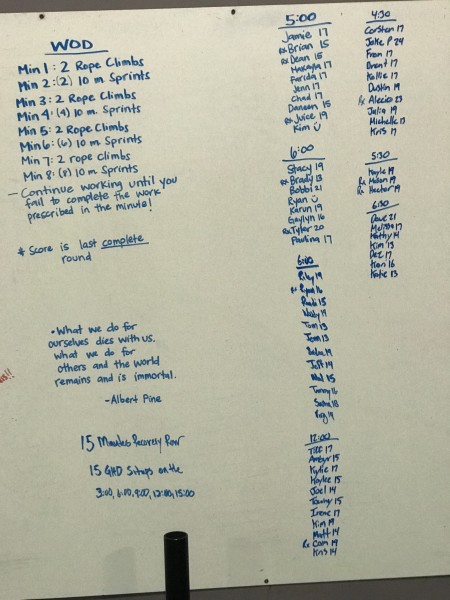 WOD
Min 1: 2 Rope Climbs
Min 2: (2) 10 m Sprints
Min 3: 2 Rope Climbs
Min 4: (4) 10 m. Sprints
Min 5: 2 Rope Climbs
Min 6: (6) 10 m Sprints
Min 7: 2 rope Climbs
Min 8: (8) 10 m Sprints
- Continue working until you
fail to complete the work
prescribed in the minute!
* Score is last complete
round
• What we do for
ourselves dies with us.
what we do for
others and the world
remains and is immortal.
- Albert Pine
15 Minutes Recovery Row
15 GHD Situps on the
3:00, 6:00, 9:00, 12:00, 15:00
5:00
Jamie 17
Rx Brian 15
Rx Dean 15
Makayla 17
Farida 17
Jenn 17
Chad 17
Daneen 15
Rx Juice 19
Kim
6:00
Stacy 19
Rx Brady 13
Bobbi 21
Ryan
Karun 19
Gaylyn 16
Rx Tyler 20
Paulina 17
Riley 19
Rx Ryan 16
15
19
Tom 13
Jenn 13
19
Jeff 14
15
Tammy 16
Susan 13
14
12:00
Tiff 17
Ambyr 15
Kylie 17
Haylee 15
Joel 14
Towny 15
Irene 17
Kim 19
Matt 14
Rx Cam 19
Kris 14
4:30
Carsten 17
Jake P 24
Fran 17
Brent 17
Kallie 17
Dustin 19
Rx Alecia 23
Julia 19
Michelle 17
Kris 17
5:30
Kayle 19
Rx Malan 19
Rx Hector 19
6:30
Dave 21
Melissa 17
Kathy 14
Kim 13
Dez 17
Ken 16
Katie 13